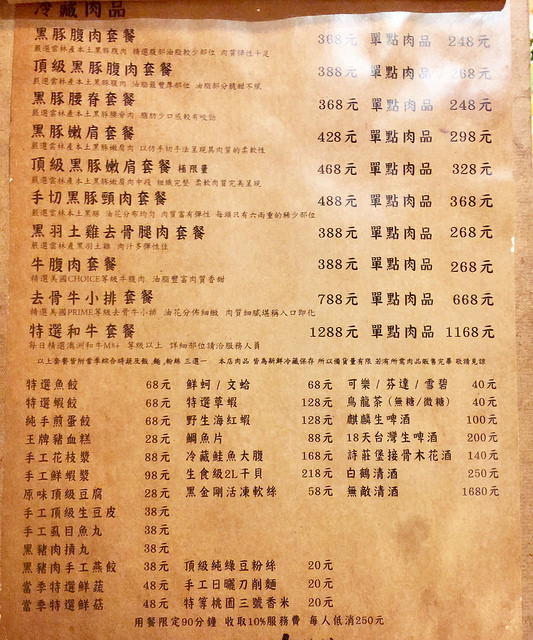 冷藏肉品
黑豚腹肉套餐 368元 單點肉品 248元
嚴選雲林產本土黑豚腹肉 精選腹部油脂較少部位 肉質彈性十足
頂級黑豚腹肉套餐 388元 單點肉品 268元
嚴選雲林產本土黑豚腹肉 油脂最豐厚部位 油脂部分脆甜不膩
黑豚腰脊套餐 368元 單點肉品 248元
嚴選雲林產本土黑豚腰脊肉 脂肪少口感較有咬勁
黑豚嫩肩套餐 428元 單點肉品 298元
嚴選雲林產本土黑豚嫩肩肉 以仿手切手法呈現其肉質的柔軟性
頂級黑豚嫩肩套餐 極限量 468元 單點肉品 328元
嚴選雲林產本土黑豚嫩肩肉中段 細緻完整 柔軟肉質完美呈現
手切黑豚頸肉套餐 488元 單點肉品 368元
嚴選雲林本土黑豚 油花分布均勻 肉質富有彈性 每頭只有六兩重的稀少部位
黑羽土雞去骨腿肉套餐 388元 單點肉品 268元
嚴選雲林產黑羽土雞 肉汁多彈性佳
牛腹肉套餐 388元 單點肉品 268元
精選美國CHOICE等級牛腹肉 油脂豐富肉質香甜
去骨牛小排套餐 788元 單點肉品 668元
精選美國PRIME等級去骨牛小排 油花分佈細緻 肉質細膩堪稱入口即化
特選和牛套餐 1288元 單點肉品 1168元
每日精選澳洲和牛M8+ 等級以上 詳細部位請洽服務人員
以上套餐皆附當季綜合時蔬及飯,麵,粉絲 三選一 本店肉品 皆為新鮮冷藏保存 所以備貨量有限 若有所需肉品販售完畢 敬請見諒
特選魚餃 68元 鮮蚵 / 文蛤 68元 可樂 / 芬達 / 雪碧 40元
特選蝦餃 68元 特選草蝦 128元 烏龍茶 (無糖/微糖) 40元
純手煎蛋餃 68元 野生海紅蝦 128元 麒麟生啤酒 100元
王牌豬血糕 28元 鯛魚片 88元 18天台灣生啤酒 200元
手工花枝漿 88元 冷藏鮭魚大腹 168元 詩莊堡接骨木花酒 140元
手工鮮蝦漿 98元 生食級2L干貝 218元 白鶴清酒 250元
原味頂級豆腐 28元 黑金剛活凍軟絲 58元 無敵清酒 1680元
手工頂級生豆皮 38元
手工虱目魚丸 38元
黑豬肉摃丸 38元
黑豬肉手工燕餃 38元 頂級純綠豆粉絲 20元
當季特選鮮蔬 48元 手工日曬刀削麵 20元
當季特選鮮菇 48元 特等桃園三號香米 20元
用餐限定90分鐘 收取10%服務費 每人低消250元